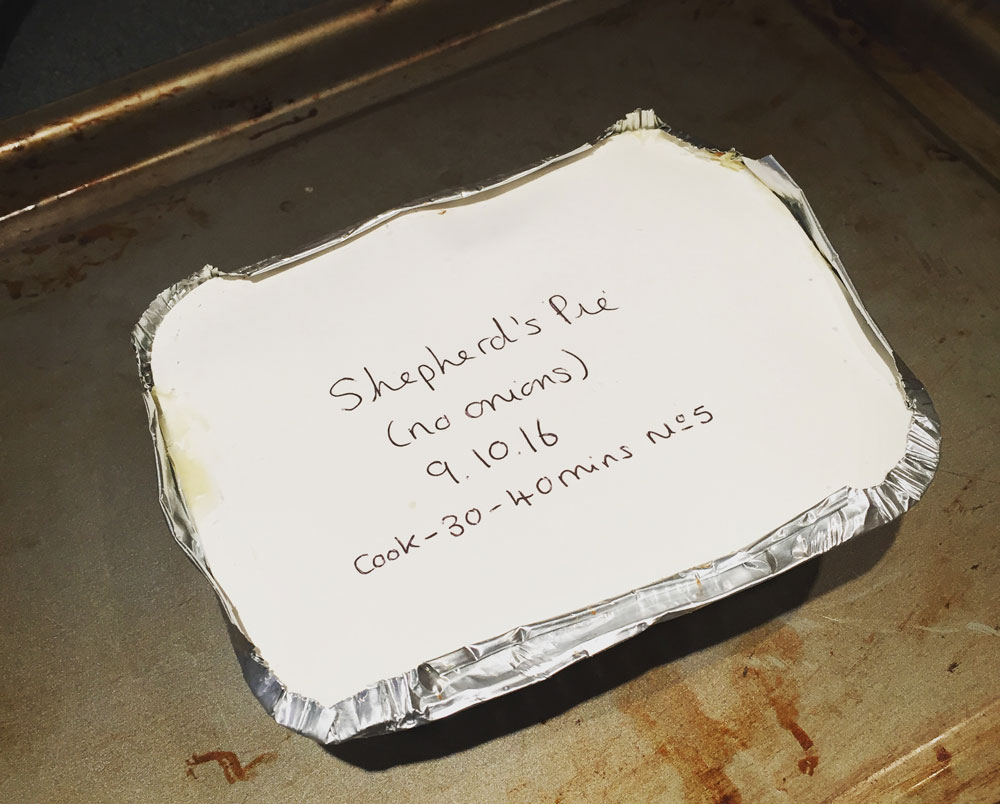 Shepherd's Pie
(no onions)
9.10.16
Cook-30-40mins Nº5